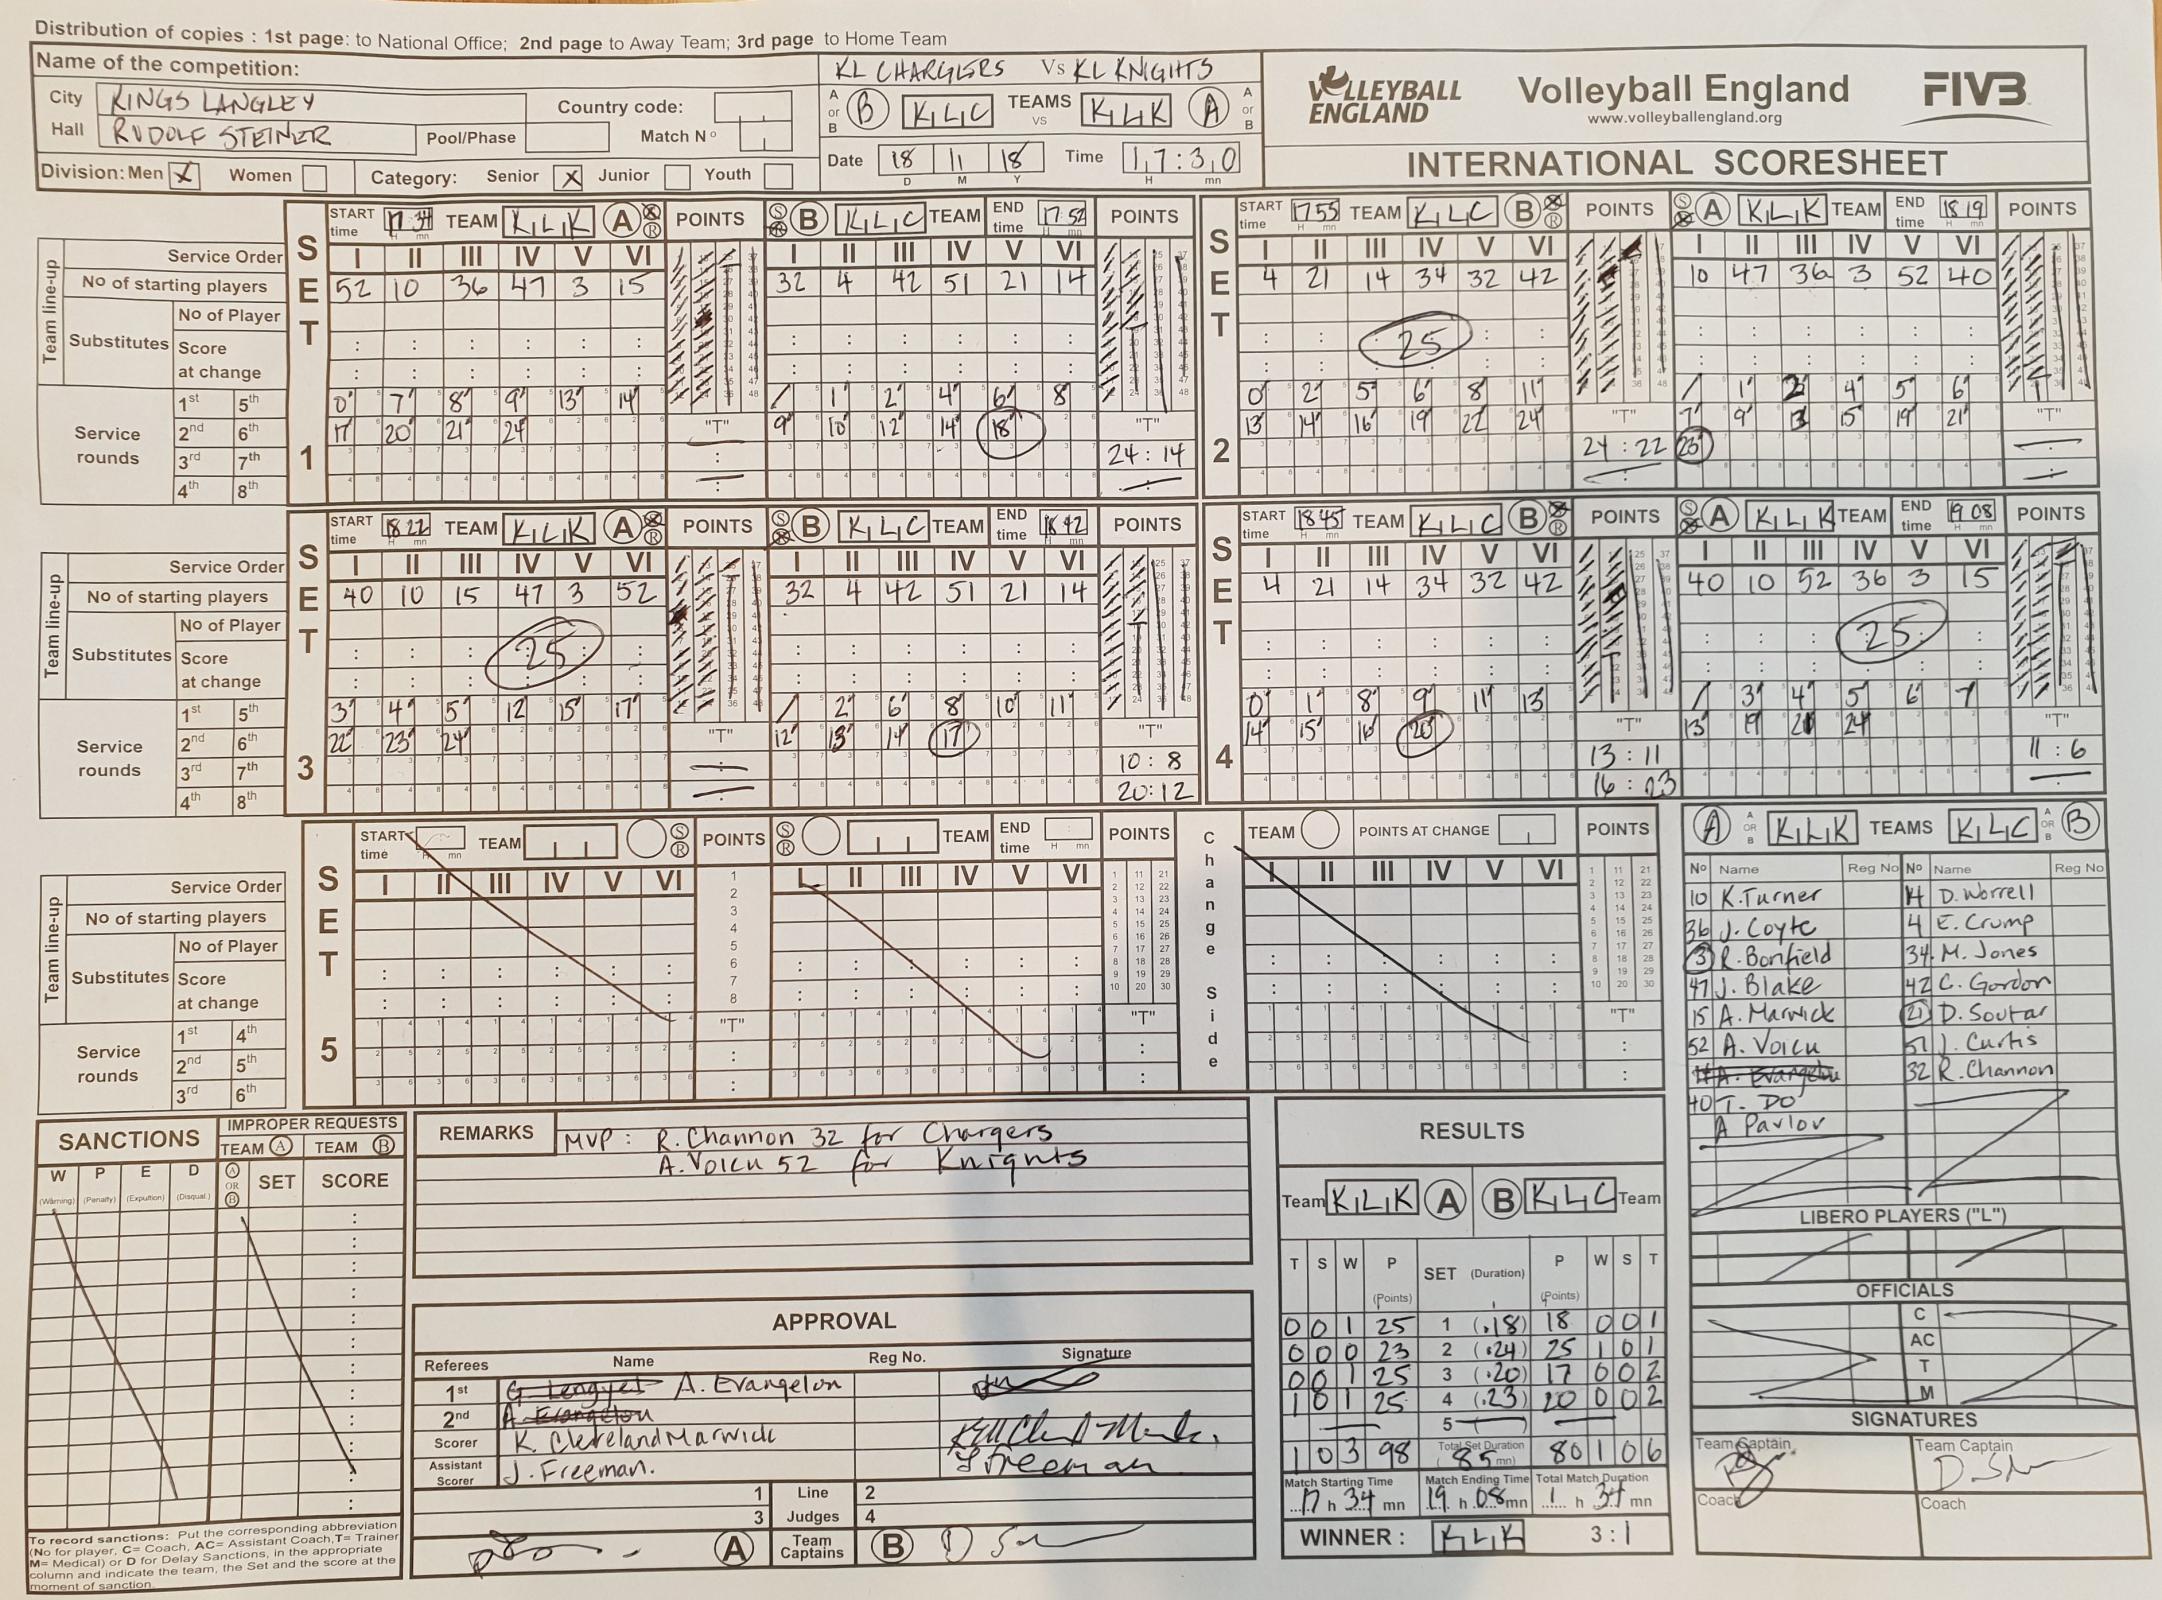 Distribution of copies : 1st page: to National Office; 2nd page to Away Team; 3rd page to Home Team
Name of the competition:
KL CHARGERS Vs KL KNIGHTS
City KINGS LANGLEY Country code:
Hall RUDOLF STEINER Pool/Phase Match No
Division: Men X Women Category: Senior X Junior Youth
A or B B KLC TEAMS VS KLK A A or B
Date 18 11 18 Time 17:30
D M Y H mn
VOLLEYBALL ENGLAND
Volleyball England
www.volleyballengland.org
FIVB
INTERNATIONAL SCORESHEET
Team line-up
Service Order
No of starting players
Substitutes No of Player
Score at change
Service rounds
1st 5th
2nd 6th
3rd 7th
4th 8th
SET 1
START time 17 34 TEAM KLK A S R POINTS
I II III IV V VI
52 10 36 47 3 15
0 7 8 9 13 14
17 20 21 24
"T"
S R B KLC TEAM END time 17 52 POINTS
I II III IV V VI
32 4 42 51 21 14
1 2 4 6 8
9 10 12 14 18
"T"
24 : 14
SET 2
START time 17 55 TEAM KLC B S R POINTS
I II III IV V VI
4 21 14 34 32 42
25
0 2 5 6 8 11
13 14 16 19 22 24
"T"
24 : 22
S R A KLK TEAM END time 18 19 POINTS
I II III IV V VI
10 47 36 3 52 40
1 2 4 5 6
7 9 13 15 19 21
23
"T"
Team line-up
Service Order
No of starting players
Substitutes No of Player
Score at change
Service rounds
1st 5th
2nd 6th
3rd 7th
4th 8th
SET 3
START time 18 22 TEAM KLK A S R POINTS
I II III IV V VI
40 10 15 47 3 52
25
3 4 5 12 15 17
22 23 24
"T"
S R B KLC TEAM END time 18 42 POINTS
I II III IV V VI
32 4 42 51 21 14
2 6 8 10 11
12 13 14 17
"T"
10 : 8
20 : 12
SET 4
START time 18 45 TEAM KLC B S R POINTS
I II III IV V VI
4 21 14 34 32 42
0 1 8 9 11 13
14 15 16 20
"T"
13 : 11
16 : 23
S R A KLK TEAM END time 19 08 POINTS
I II III IV V VI
40 10 52 36 3 15
25
3 4 5 6 7
13 19 21 24
"T"
11 : 6
Team line-up
Service Order
No of starting players
Substitutes No of Player
Score at change
Service rounds
1st 4th
2nd 5th
3rd 6th
SET 5
START time H mn TEAM S R POINTS
I II III IV V VI
1 2 3 4 5 6 7 8
"T"
S R TEAM END time H mn POINTS
I II III IV V VI
"T"
Change Side
TEAM POINTS AT CHANGE POINTS
I II III IV V VI
"T"
A A OR B KLK TEAMS KLC A OR B B
No Name Reg No No Name Reg No
10 K. Turner 14 D. Worrell
36 J. Coyte 4 E. Crump
3 R. Bonfield 34 M. Jones
47 J. Blake 42 C. Gordon
15 A. Marwick 21 D. Soutar
52 A. Voicu 51 J. Curtis
A. Evangelou 32 R. Channon
40 T. Do
A Pavlov
LIBERO PLAYERS ("L")
OFFICIALS
C
AC
T
M
SIGNATURES
Team Captain Team Captain
Coach Coach
SANCTIONS
IMPROPER REQUESTS
TEAM A TEAM B
W P E D A OR B SET SCORE
(Warning) (Penalty) (Expultion) (Disqual.)
To record sanctions: Put the corresponding abbreviation
(No for player, C= Coach, AC= Assistant Coach, T= Trainer
M= Medical) or D for Delay Sanctions, in the appropriate
column and indicate the team, the Set and the score at the
moment of sanction.
REMARKS
MVP : R. Channon 32 for Chargers
A. Voicu 52 for Knights
APPROVAL
Referees Name Reg No. Signature
1st G. Lengyel A. Evangelou
2nd A. Evangelou
Scorer K. Cleveland Marwick
Assistant Scorer J. Freeman. J Freeman
1 Line 2
3 Judges 4
A Team Captains B
RESULTS
Team KLK A B KLC Team
T S W P (Points) SET (Duration) P (Points) W S T
0 0 1 25 1 (18) 18 0 0 1
0 0 0 23 2 (24) 25 1 0 1
0 0 1 25 3 (20) 17 0 0 2
1 0 1 25 4 (23) 20 0 0 2
5
1 0 3 98 Total Set Duration (85 mn) 80 1 0 6
Match Starting Time Match Ending Time Total Match Duration
17 h 34 mn 19 h 08 mn 1 h 34 mn
WINNER : KLK 3 : 1